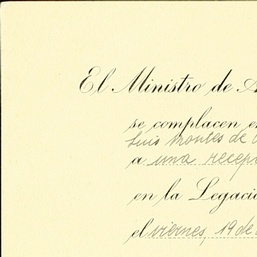 El Ministro de A
se complacen e
Luis Montes de O
a una recep
en la Legació
el viernes, 19 de